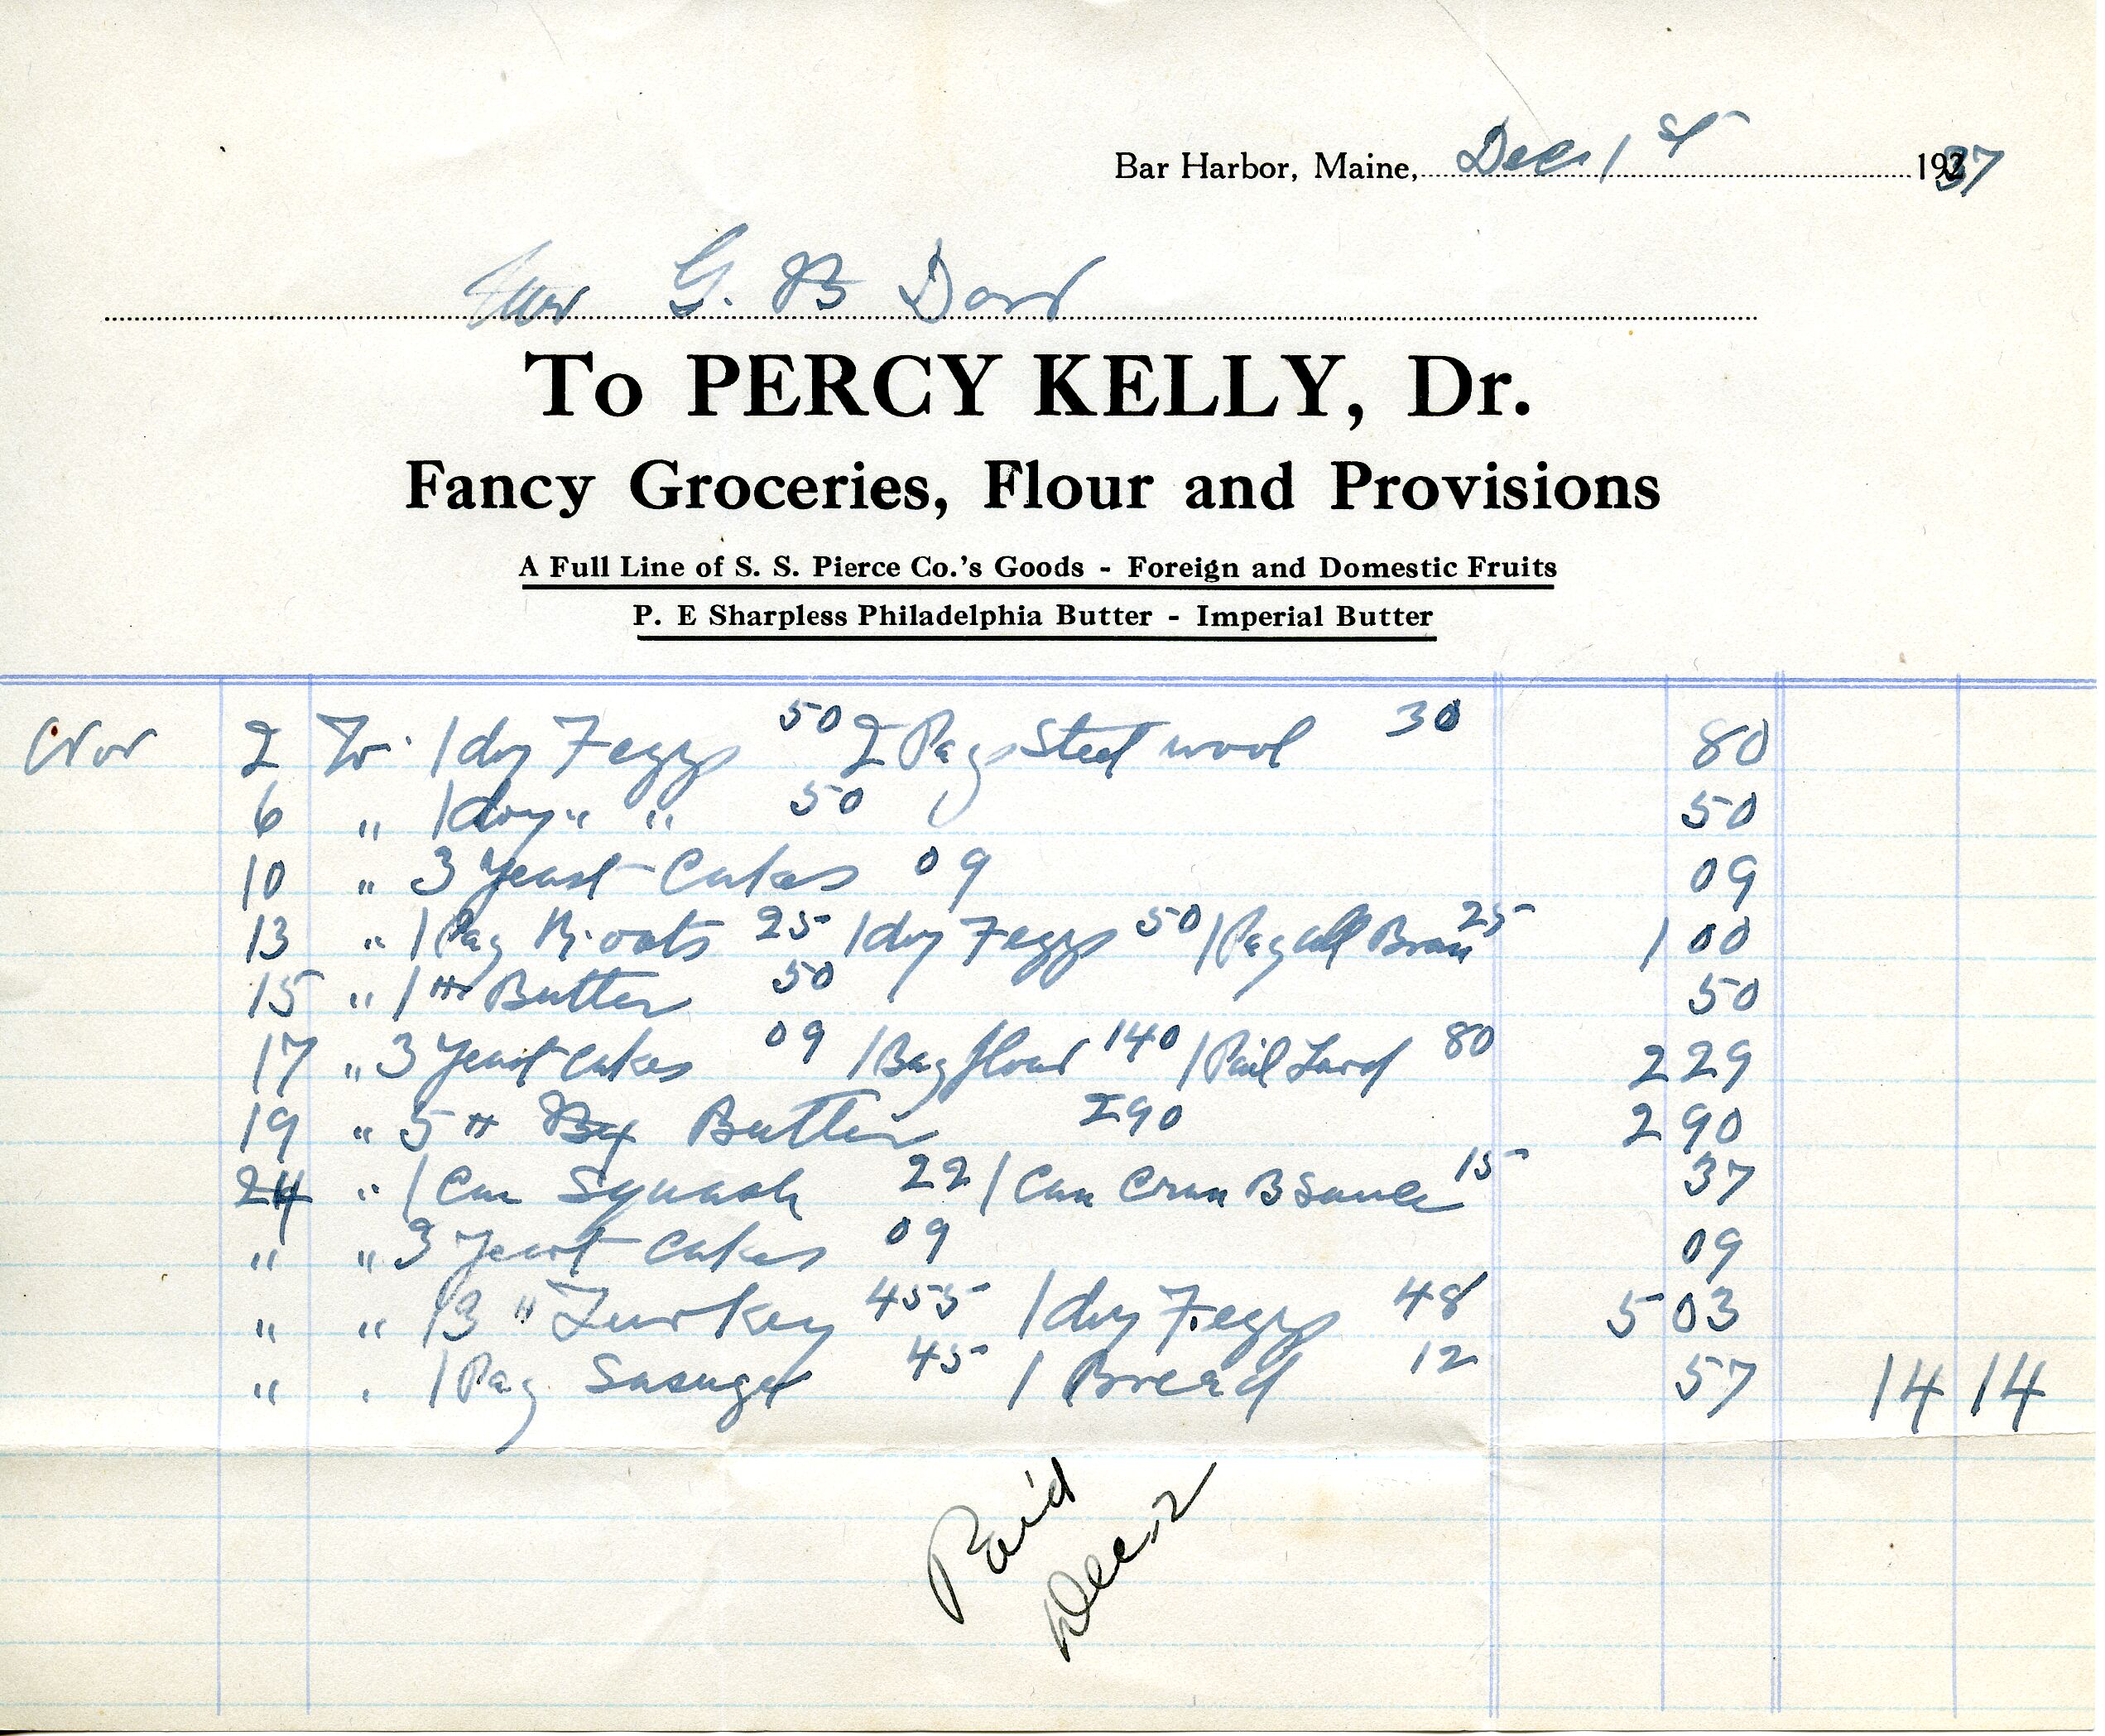 Bar Harbor, Maine, Dec 1st 1937
Mr G. B Dorr
To PERCY KELLY, Dr.
Fancy Groceries, Flour and Provisions
A Full Line of S. S. Pierce Co.'s Goods - Foreign and Domestic Fruits
P. E Sharpless Philadelphia Butter - Imperial Butter
Nov 2 To 1 doz F eggs 50 2 Pag Steel wool 30 80
6 " 1 doz " " 50 50
10 " 3 Yeast Cakes 09 09
13 " 1 Pag R. oats 25 1 doz F eggs 50 1 Pag all Bran 25 1 00
15 " 1 # Butter 50 50
17 " 3 Yeast Cakes 09 1 Bag flour 140 1 Pail Lard 80 2 29
19 " 5 # Bx Butter 290 2 90
24 " 1 Can Squash 22 1 Can Cran B Sauce 15 37
" " 3 Yeast Cakes 09 09
" " 13 # Turkey 455 1 doz F. eggs 48 5 03
" " 1 Pag Sausage 45 1 Bread 12 57 14 14
Paid
Dec 2